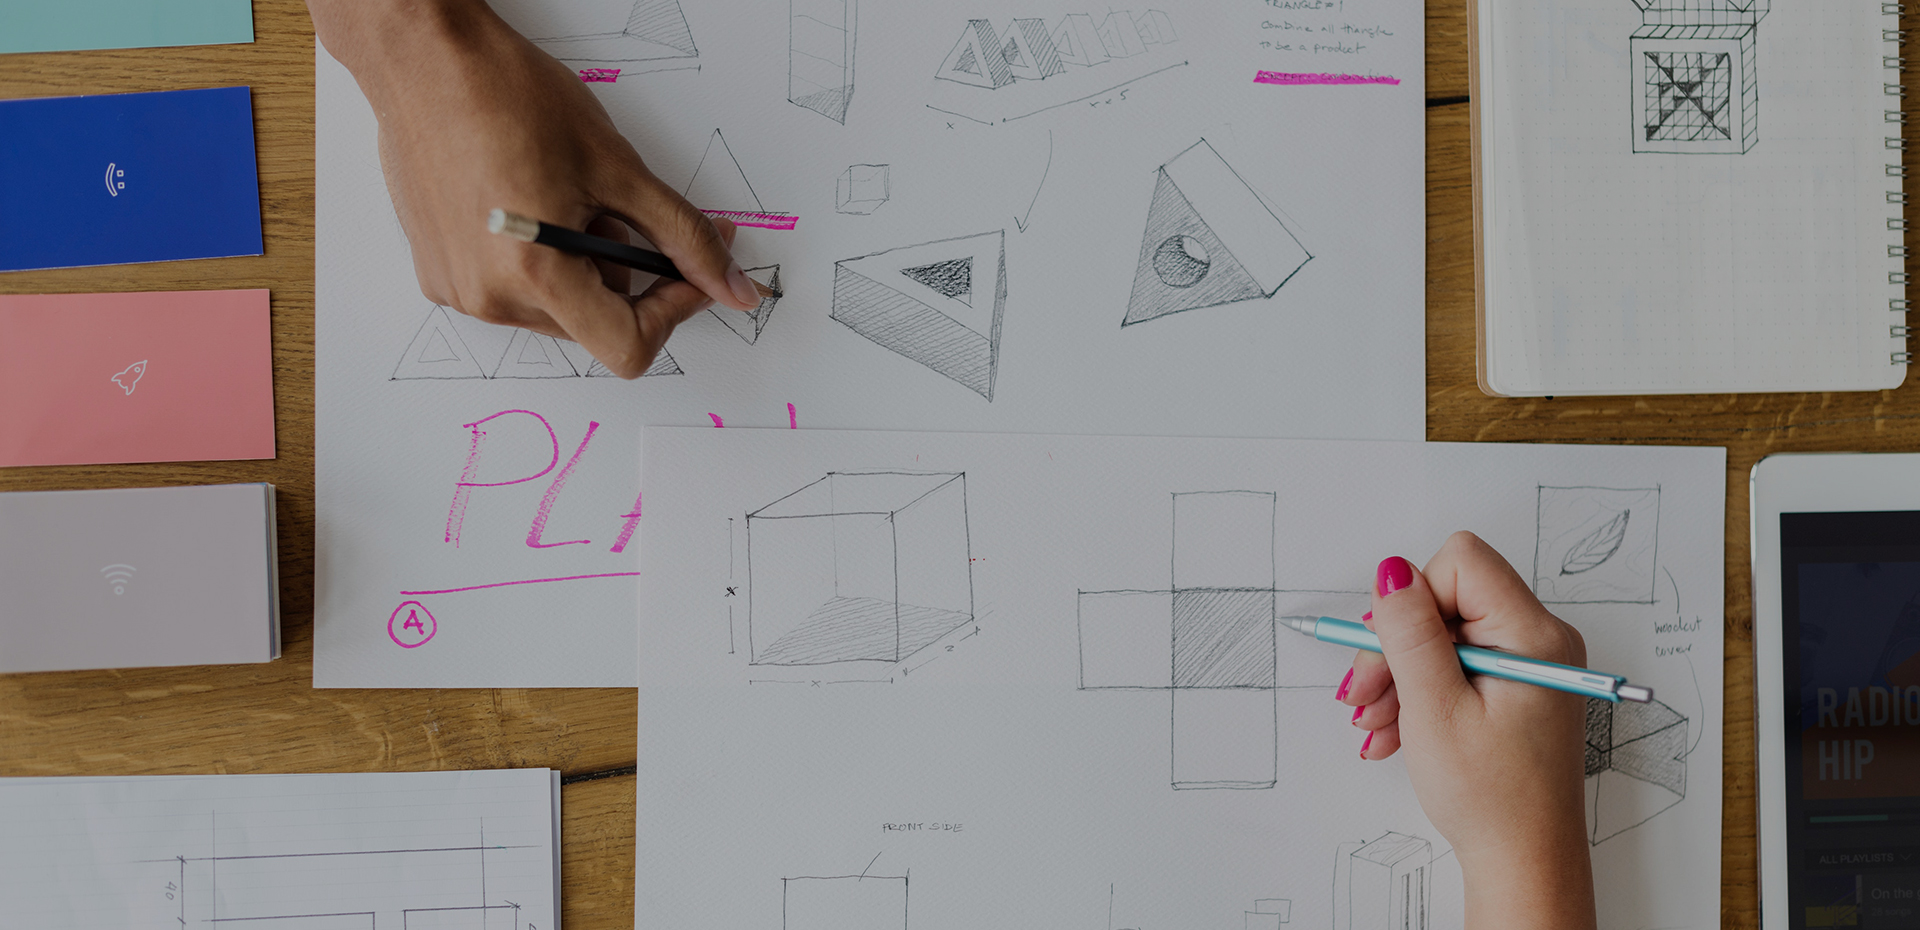 TRIANGLE #1
Combine all triangle
to be a product
x
x < 5
PLA
A
x
x
2
woodcut
cover
FRONT SIDE
40
RADIO
HIP
ALL PLAYLISTS
On the